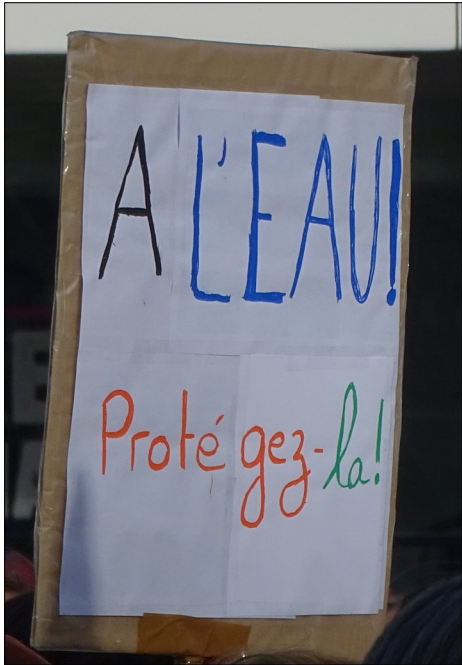 A L'EAU!
Protégez-la!